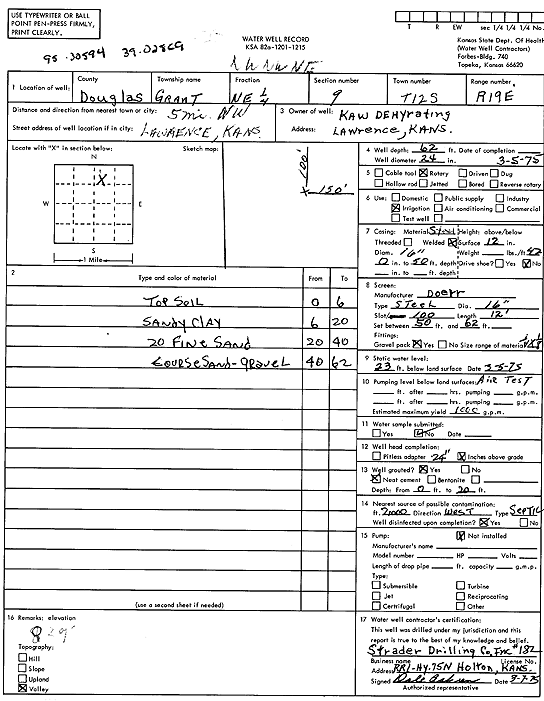 USE TYPEWRITER OR BALL
POINT PEN-PRESS FIRMLY,
PRINT CLEARLY.
T R EW sec 1/4 1/4 1/4 No.
WATER WELL RECORD
KSA 82a-1201-1215
Kansas State Dept. Of Health
(Water Well Contractors)
Forbes-Bldg. 740
Topeka, Kansas 66620
95.30594 39.02869
NWNWNE
1 Location of well:
County Township name Fraction Section number Town number Range number
Douglas GRANT NE 1/4 9 T12S R19E
Distance and direction from nearest town or city: 5 mi. NW
Street address of well location if in city: LAWRENCE, KANS.
3 Owner of well: KAW DEHYRATING
Address: LAWRENCE, KANS.
Locate with "X" in section below:
N
X
W E
S
1 Mile
Sketch map:
100'
X 150'
2 Type and color of material From To
TOP SOIL 0 6
SANDY CLAY 6 20
20 FINE SAND 20 40
COURSE SAND-GRAVEL 40 62
(use a second sheet if needed)
16 Remarks: elevation
829'
Topography:
Hill
Slope
Upland
X Valley
4 Well depth: 62 ft. Date of completion
Well diameter 24 in. 3-5-75
5 Cable tool X Rotary Driven Dug
Hollow rod Jetted Bored Reverse rotary
6 Use: Domestic Public supply Industry
X Irrigation Air conditioning Commercial
Test well
7 Casing: Material Steel Height: above/below
Threaded Welded X Surface 12 in.
Diam. 16" Weight lbs./ft 42
0 in. to 50 ft. depth Drive shoe? Yes X No
in. to ft. depth
8 Screen:
Manufacturer Doerr
Type STEEL Dia. 16"
Slot/ 100 Length 12'
Set between 50 ft. and 62 ft.
Fittings:
Gravel pack X Yes No Size range of material
9 Static water level:
23 ft. below land surface Date 3-5-75
10 Pumping level below land surfaces: AIR TEST
ft. after hrs. pumping g.p.m.
ft. after hrs. pumping g.p.m.
Estimated maximum yield 1000 g.p.m.
11 Water sample submitted:
Yes No Date
12 Well head completion:
Pitless adapter 24" X Inches above grade
13 Well grouted? X Yes No
X Neat cement Bentonite
Depth: From 0 ft. to 20 ft.
14 Nearest source of possible contamination:
ft. 2000 Direction West Type SEPTIC
Well disinfected upon completion? X Yes No
15 Pump: X Not installed
Manufacturer's name
Model number HP Volts
Length of drop pipe ft. capacity g.m.p.
Type:
Submersible Turbine
Jet Reciprocating
Centrifugal Other
17 Water well contractor's certification:
This well was drilled under my jurisdiction and this
report is true to the best of my knowledge and belief.
Strader Drilling Co, Inc #182
Business name License No.
Address RR1-Hy.75N Holton, KANS.
Signed Date
Authorized representative